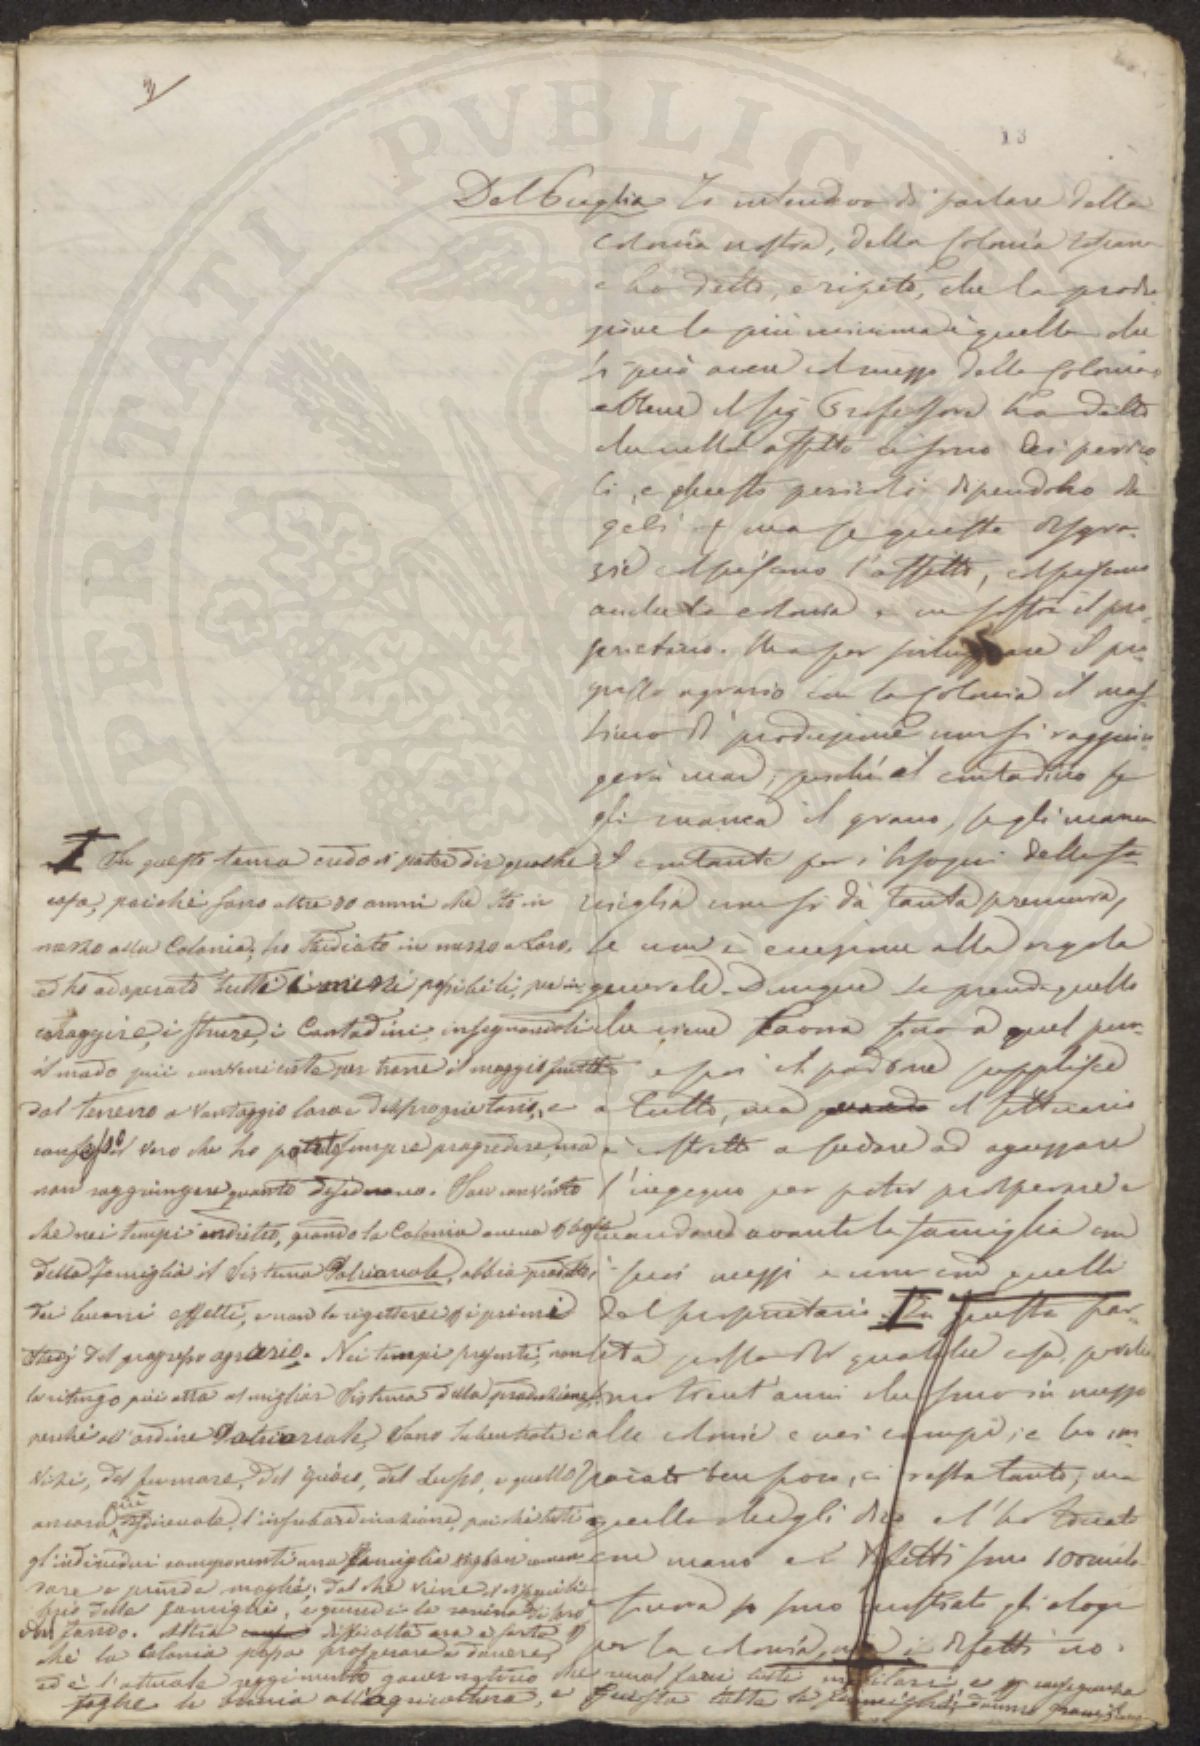 3
13
Del Puglia Io intendevo di parlare della
colonia nostra, della Colonia toscana
e ho detto, e ripeto, che la produ-
zione la più minima è quella che
si può avere col mezzo della Colonia
ebbene il sig Professore ha detto
che nelli affitti ci sono dei perico-
li, e questi pericoli dipendono da
geli ma se queste disgra-
zie colpiscano l'affitto, colpiscano
anche la colonia e ne soffre il pro-
prietario. Ma per sviluppare il pro-
gresso agrario con la Colonia il mas-
simo di produzione non si raggiun-
gerà mai, perché il contadino se
gli manca il grano, se gli manca
il contante per i bisogni della fa-
miglia non si dà tanta premura,
se non è eccezione alla regola
generale. Dunque se prende quello
che viene buona fino a quel pun-
to e poi il padrone supplisce
a tutto, ma il fittuario
è costretto a sudare ad aguzzare
l'ingegno per poter prosperare e
mandare avanti la famiglia con
i suoi mezzi e non con quelli
del proprietario. In questa par-
tita posso dir qualche cosa, perché
sono trent'anni che sono in mezzo
alle colonie e nei campi, e ho im-
parato ben poco, ci resta tanto, ma
quello che gli dico è l'ho toccato
con mano e i difetti sono 100mila
finora si sono mostrati gli elogi
per la colonia, ma i difetti no.
I Su questo tema credo di poter dir qualche
cosa, poiché sono oltre 30 anni che sto in
mezzo alla Colonia; ho studiato in mezzo a Loro,
ed ho adoperato tutti i mezzi possibili, per in-
coraggire, istruire, i Contadini, insegnandoli
il modo più conveniente per trarre il maggior frutto
dal terreno a vantaggio loro e del proprietario, e
confesso il vero che ho potuto sempre progredire, ma
non raggiungere quanto desideravo. Son convinto
che nei tempi indietro, quando la Colonia aveva p base
della famiglia il sistema Patriarcale, abbia prodotto,
dei buoni effetti, e non la rigetterei p i primi
studj del progresso agrario. Nei tempi presenti, non
la ritengo più atta al miglior sistema della produzione,
perché all'ordine Patriarcale, sono subentrati i
vizi, del fumare, del giuoco, del Lusso, e quello
ancora più l'insubordinazione, poiché tutti
gl'individui componenti una famiglia voglion coman-
dare e prender moglie; dal che viene il
delle famiglie, e quindi la rovina di pro-
. Altra difficoltà ora è sorta p
che la Colonia possa prosperare a dovere,
ed è l'attuale reggimento governativo che vuol farci tutti militari, e p conseguenza
toglie le braccia all'agricoltura, e questa tutte le famiglie